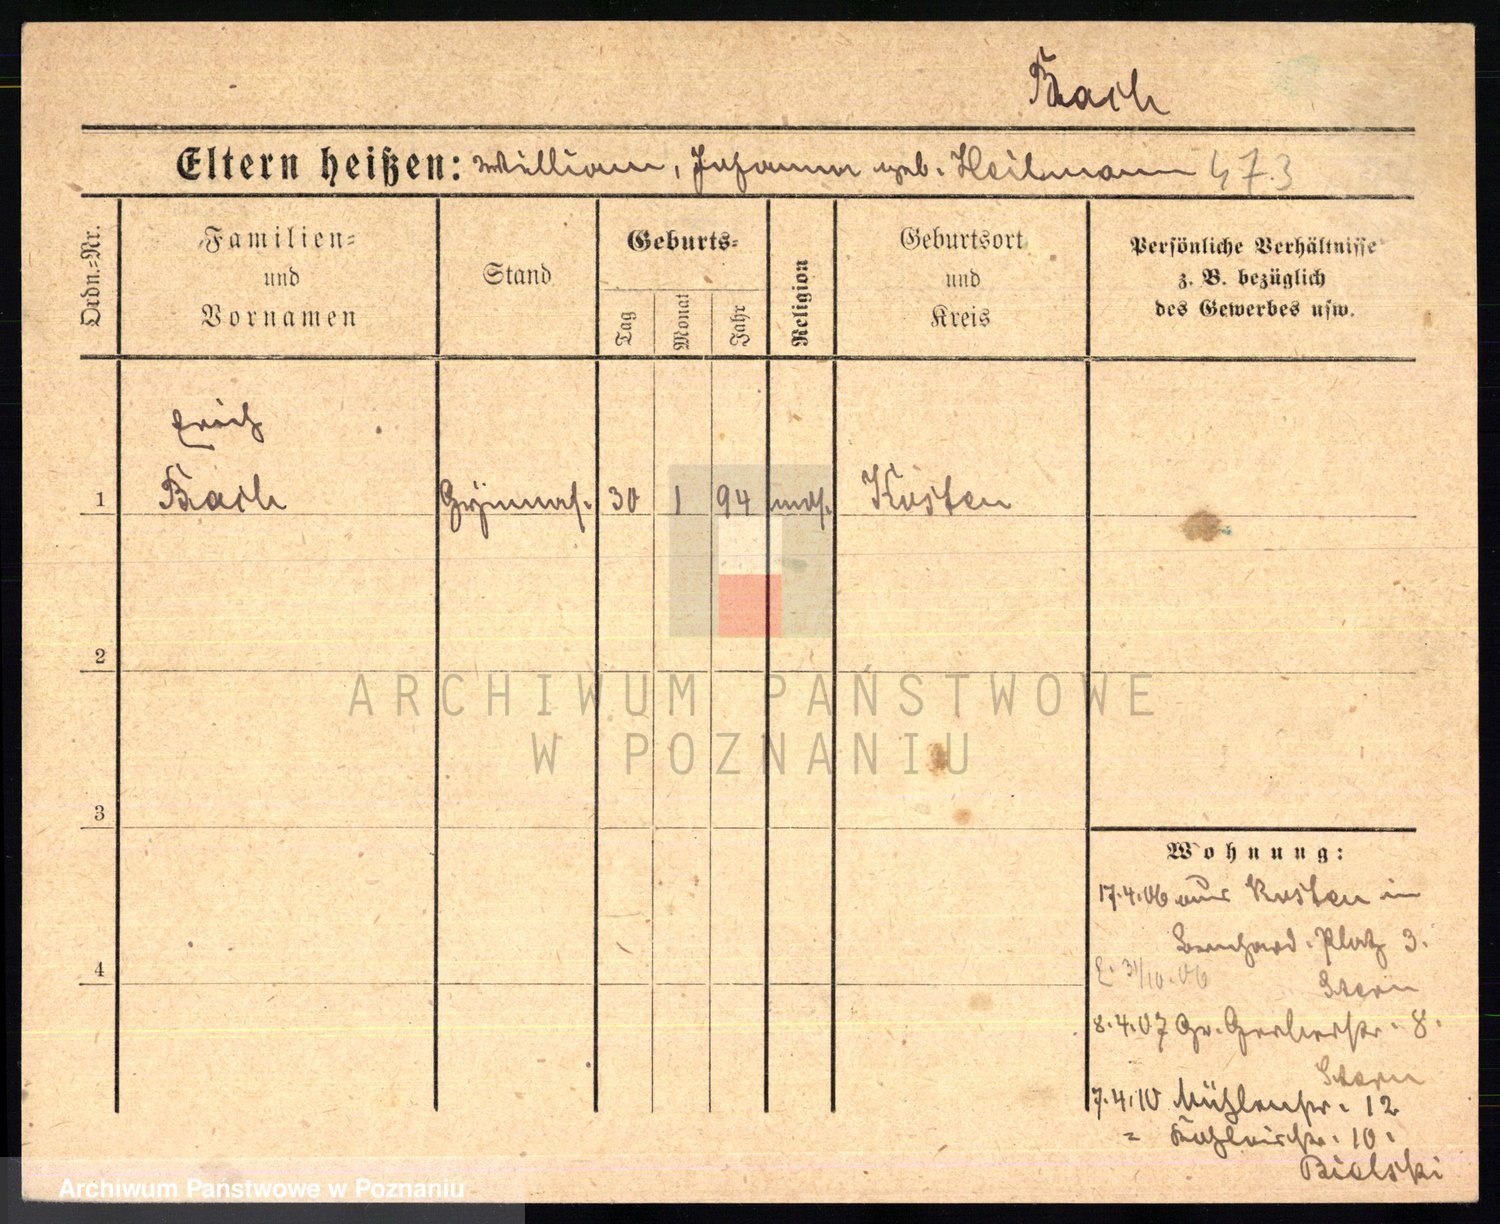 Bach
Eltern heißen: William, Johanna geb. Heilmann 473
Ordn.=Nr.
Familien=
und
Vornamen
Stand
Geburts=
Tag
Monat
Jahr
Religion
Geburtsort
und
Kreis
Persönliche Verhältnisse
z. B. bezüglich
des Gewerbes usw.
Erich
1 Bach Gymnas. 30 1 94 mos. Kosten
2
3
4
ARCHIWUM PAŃSTWOWE
W POZNANIU
Wohnung:
17.4.06 aus Kosten in
Bernhard. Platz 3.
E. 31/10.06 Stern
8.4.07 Gr. Gerberstr. 8.
Stern
7.4.10 Mühlenstr. 12
= 10.
Bielski
Archiwum Państwowe w Poznaniu